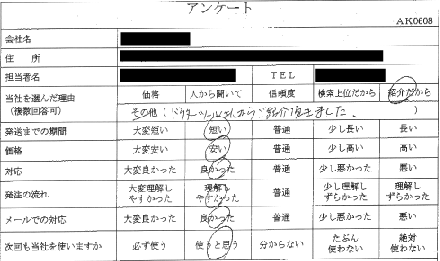 アンケート
AK0608
会社名
住　所
担当者名　TEL
当社を選んだ理由（複数回答可）　価格　人から聞いて　信頼度　検索上位だから　紹介だから
その他：　ご紹介頂きました。
発送までの期間　大変短い　短い　普通　少し長い　長い
価格　大変安い　安い　普通　少し高い　高い
対応　大変良かった　良かった　普通　少し悪かった　悪い
発注の流れ　大変理解しやすかった　理解しやすかった　普通　少し理解しずらかった　理解しずらかった
メールでの対応　大変良かった　良かった　普通　少し悪かった　悪い
次回も当社を使いますか　必ず使う　使うと思う　分からない　たぶん使わない　絶対使わない